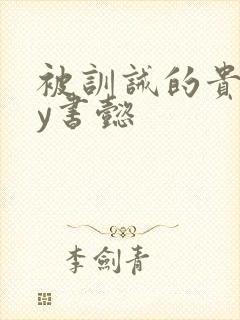 被訓誡的貴
y書懿
李劍青